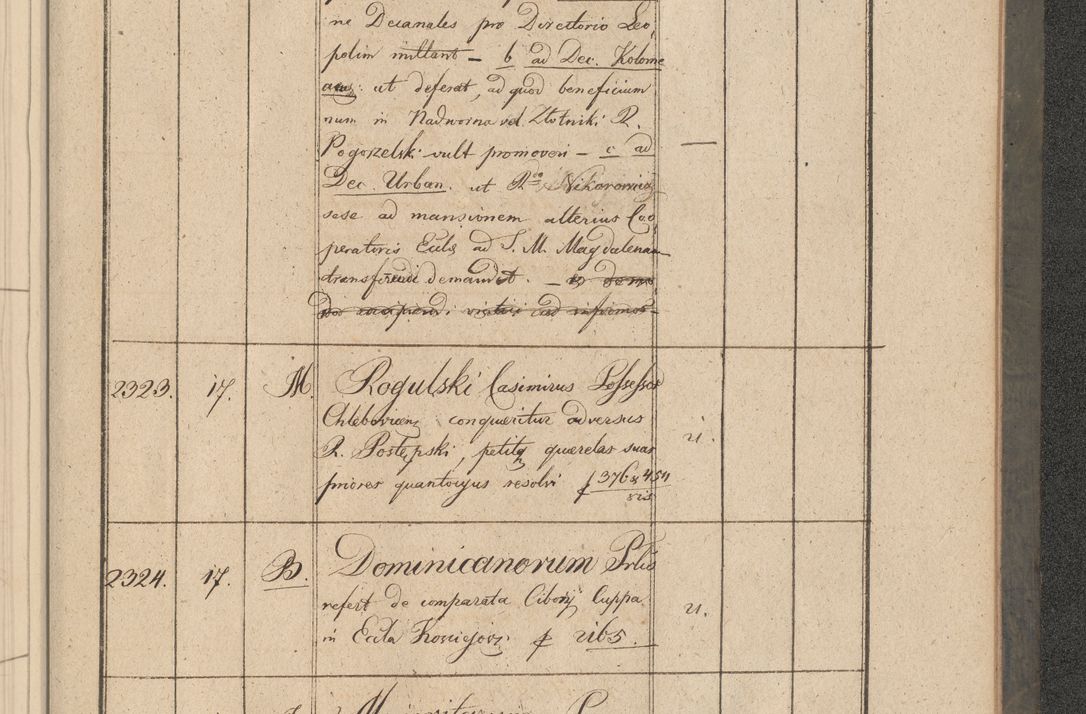 ne Decanales pro Directorio Leo
polim mittant — b ad Dec. Kolome
ut deferat, ad quod beneficium
num in Nadworna vel Złotniki R.
Pogorzelski vult promoveri — c ad
Dec. Urban. ut Rdo Nikorowicz
sese ad mansionem alterius Coo
peratoris Eccle ad S. M. Magdalenam
transferendi demandet. —
2323. 17. M. Rogulski Casimirus Possessor
Chlebovicen conqueritur adversus
R. Postępski, petitq querelas suas
priores quantocyus resolvi f 376 & 454
ris
u.
2324. 17. B. Dominicanorum Prlis
refert de comparata Ciborij Cuppa
in Eccla f 2165.
u.